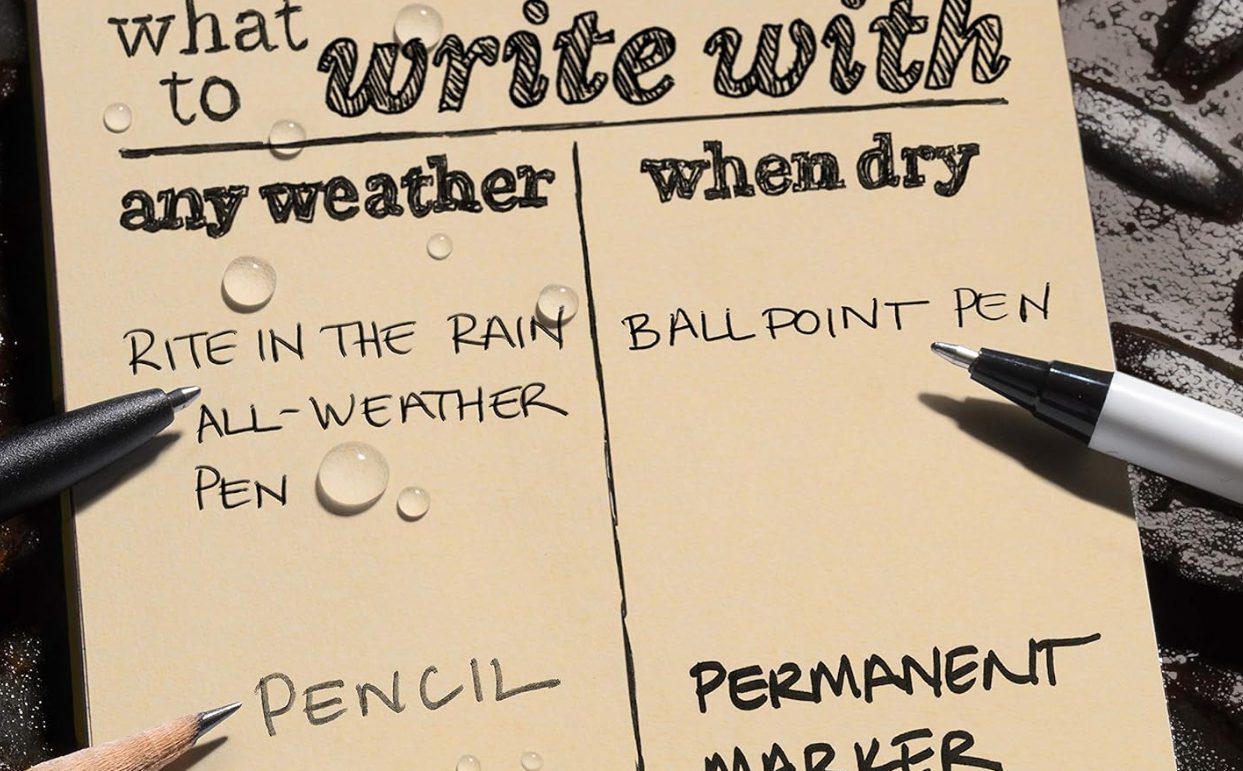 what
to write with
any weather
when dry
RITE IN THE RAIN
ALL-WEATHER
PEN
BALLPOINT PEN
PENCIL
PERMANENT
MARKER